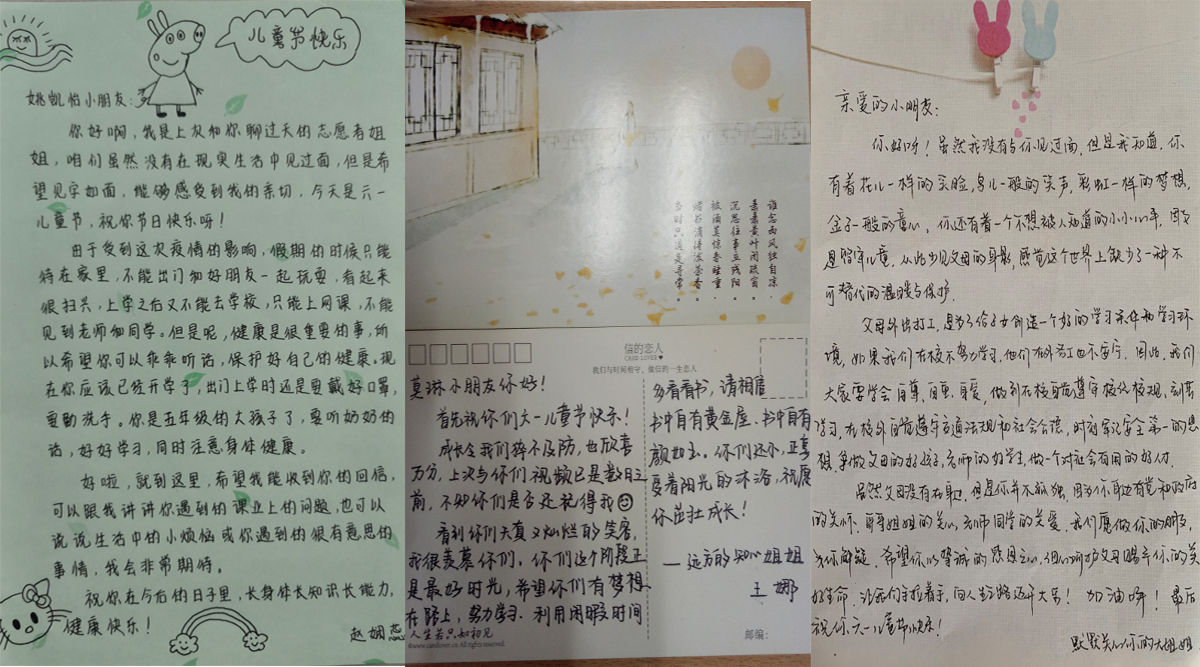 儿童节快乐
姚凯怡小朋友：
你好啊，我是上次和你聊过天的志愿者姐
姐，咱们虽然没有在现实生活中见过面，但是希
望见字如面，能够感受到我的亲切，今天是六一
儿童节，祝你节日快乐呀！
由于受到这次疫情的影响，假期的时候只能
待在家里，不能出门和好朋友一起玩耍，看起来
很扫兴，上学之后又不能去学校，只能上网课，不能
见到老师和同学。但是呢，健康是很重要的事，所
以希望你可以乖乖听话，保护好自己的健康。现
在你应该已经开学了，出门上学时还是要戴好口罩，
要勤洗手。你是五年级的大孩子了，要听奶奶的
话，好好学习，同时注意身体健康。
好啦，就到这里，希望我能收到你的回信，
可以跟我讲讲你遇到的课业上的问题，也可以
说说生活中的小烦恼或你遇到的很有意思的
事情，我会非常期待。
祝你在今后的日子里，长身体长知识长能力，
健康快乐！
赵姻蕊
谁念西风独自凉
萧萧黄叶闭疏窗
沉思往事立残阳
被酒莫惊春睡重
赌书消得泼茶香
当时只道是寻常。
信的恋人
CARD LOVER
我们与时间相守，做信的一生恋人
莫琳小朋友你好！
首先祝你们六一儿童节快乐！
成长令我们猝不及防，也欣喜
万分，上次与你们视频已是数月之
前，不知你们是否还记得我
看到你们天真又灿烂的笑容，
我很羡慕你们，你们这个阶段正
是最好时光，希望你们有梦想
在路上，努力学习，利用闲暇时间
多看看书，请相信
书中自有黄金屋，书中自有
颜如玉。你们还小，正享
受着阳光的沐浴，祝愿
你茁壮成长！
—远方的知心姐姐
王娜
人生若只如初见
©www.cardlover.cn All rights reserved.
邮编：
亲爱的小朋友：
你好呀！虽然我没有与你见过面，但是我知道，你
有着花儿一样的笑脸，鸟儿一般的笑声，彩虹一样的梦想，
金子一般的童心，你还有着一个不想被人知道的小小心事，因为
是留守儿童，从此少见父母的身影，感觉这个世界上缺少了一种不
可替代的温暖与保护。
父母外出打工，是为了给子女创造一个好的学习条件和学习环
境，如果我们在校不努力学习，他们在外务工也不安心。因此，我们
大家要学会自尊、自重、自爱，做到在校自觉遵守校纪校规，刻苦
学习，在校外自觉遵守交通法规和社会公德，时刻牢记安全第一的思
想，争做父母的好孩子，老师的好学生，做一个对社会有用的好人。
虽然父母没有在身边，但是你并不孤独，因为你身边有党和政府
的关怀，哥哥姐姐的关心，老师同学的关爱，我们愿做你的朋友，
为你解疑，希望你以赞诚的感恩之心，细心呵护父母赐予你的美
好生命，让我们手拉着手，向人生之路迈开大步！加油呀！最后
祝你六一儿童节快乐！
默默关心你的大姐姐